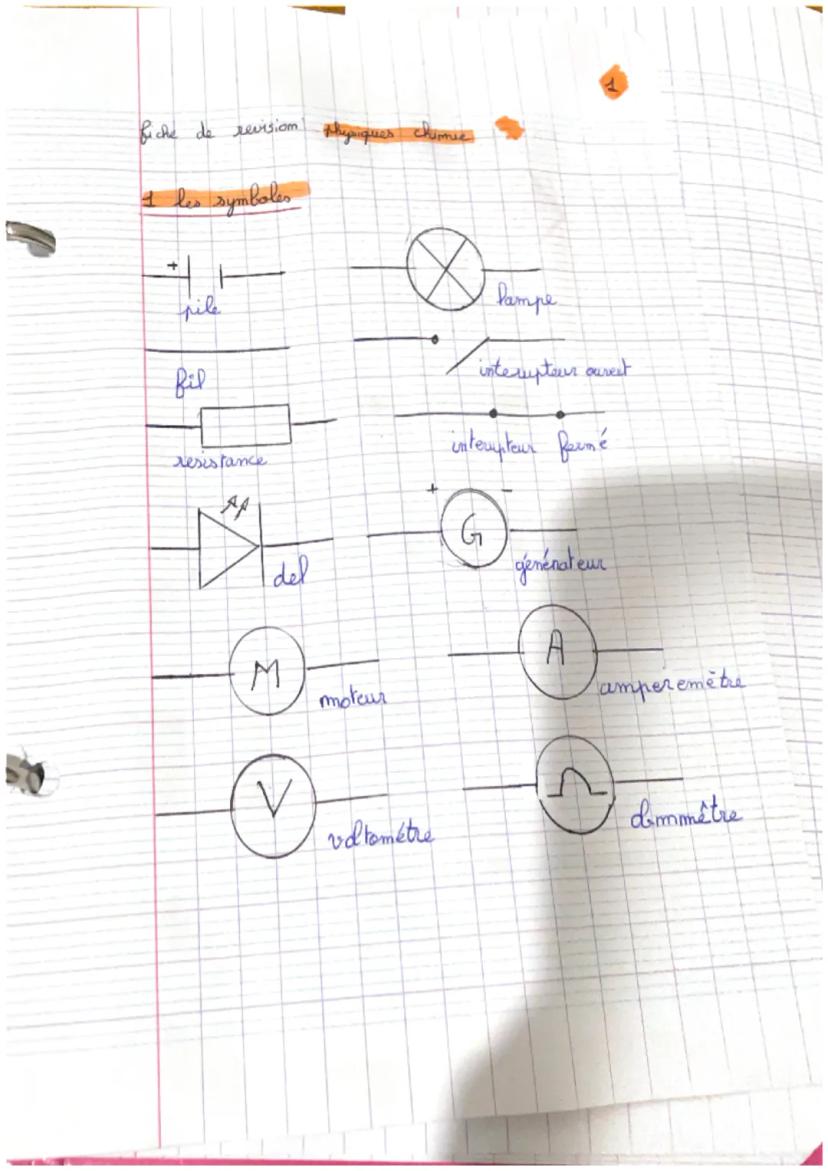 1
fiche de revision physiques chimie
1 les symboles
+
pile
lampe
fil
interupteur ouvert
resistance
interupteur fermé
+ -
G
del
génénateur
M
moteur
A
amperemètre
V
voltomètre
dimmêtre